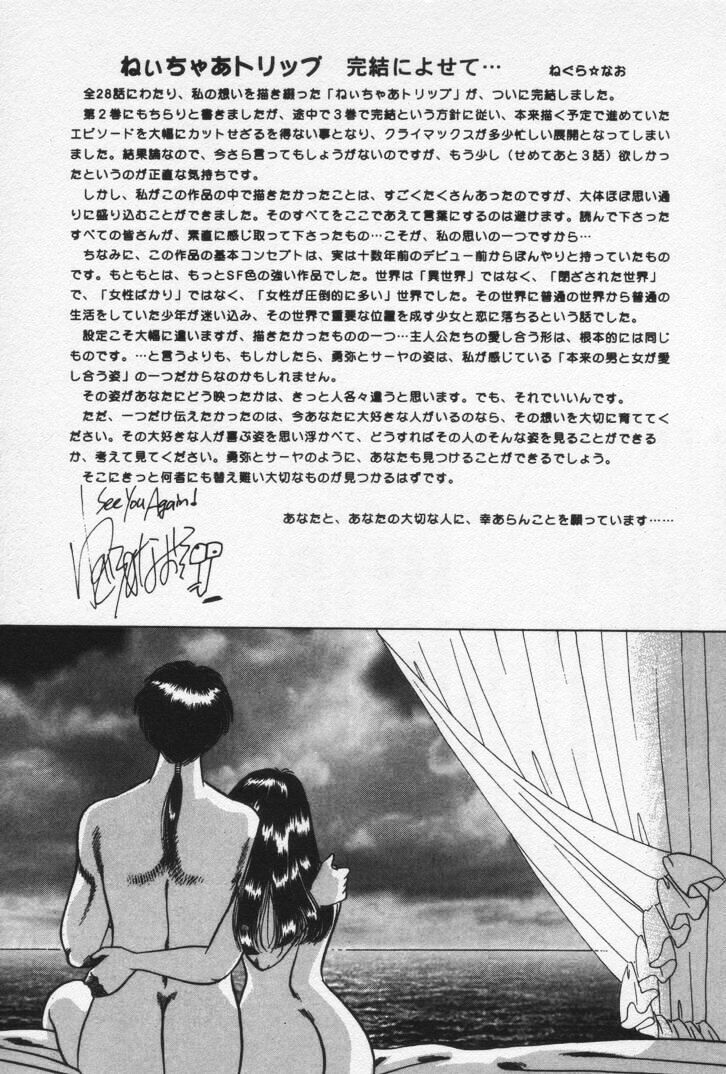 ねぃちゃあトリップ　完結によせて…　ねぐら☆なお
全28話にわたり、私の想いを描き綴った「ねぃちゃあトリップ」が、ついに完結しました。
第2巻にもちらりと書きましたが、途中で3巻で完結という方針に従い、本来描く予定で進めていた
エピソードを大幅にカットせざるを得ない事となり、クライマックスが多少忙しい展開となってしまい
ました。結果論なので、今さら言ってもしょうがないのですが、もう少し（せめてあと3話）欲しかっ
たというのが正直な気持ちです。
しかし、私がこの作品の中で描きたかったことは、すごくたくさんあったのですが、大体ほぼ思い通
りに盛り込むことができました。そのすべてをここであえて言葉にするのは避けます。読んで下さった
すべての皆さんが、素直に感じ取って下さったもの…こそが、私の思いの一つですから…
ちなみに、この作品の基本コンセプトは、実は十数年前のデビュー前からぼんやりと持っていたもの
です。もともとは、もっとSF色の強い作品でした。世界は「異世界」ではなく、「閉ざされた世界」
で、「女性ばかり」ではなく、「女性が圧倒的に多い」世界でした。その世界に普通の世界から普通の
生活をしていた少年が迷い込み、その世界で重要な位置を成す少女と恋に落ちるという話でした。
設定こそ大幅に違いますが、描きたかったものの一つ…主人公たちの愛し合う形は、根本的には同じ
ものです。…と言うよりも、もしかしたら、勇弥とサーヤの姿は、私が感じている「本来の男と女が愛
し合う姿」の一つだからなのかもしれません。
その姿があなたにどう映ったかは、きっと人各々違うと思います。でも、それでいいんです。
ただ、一つだけ伝えたかったのは、今あなたに大好きな人がいるのなら、その想いを大切に育ててく
ださい。その大好きな人が喜ぶ姿を思い浮かべて、どうすればその人のそんな姿を見ることができる
か、考えて見てください。勇弥とサーヤのように、あなたも見つけることができるでしょう。
そこにきっと何者にも替え難い大切なものが見つかるはずです。
I See You Again!
あなたと、あなたの大切な人に、幸あらんことを願っています……